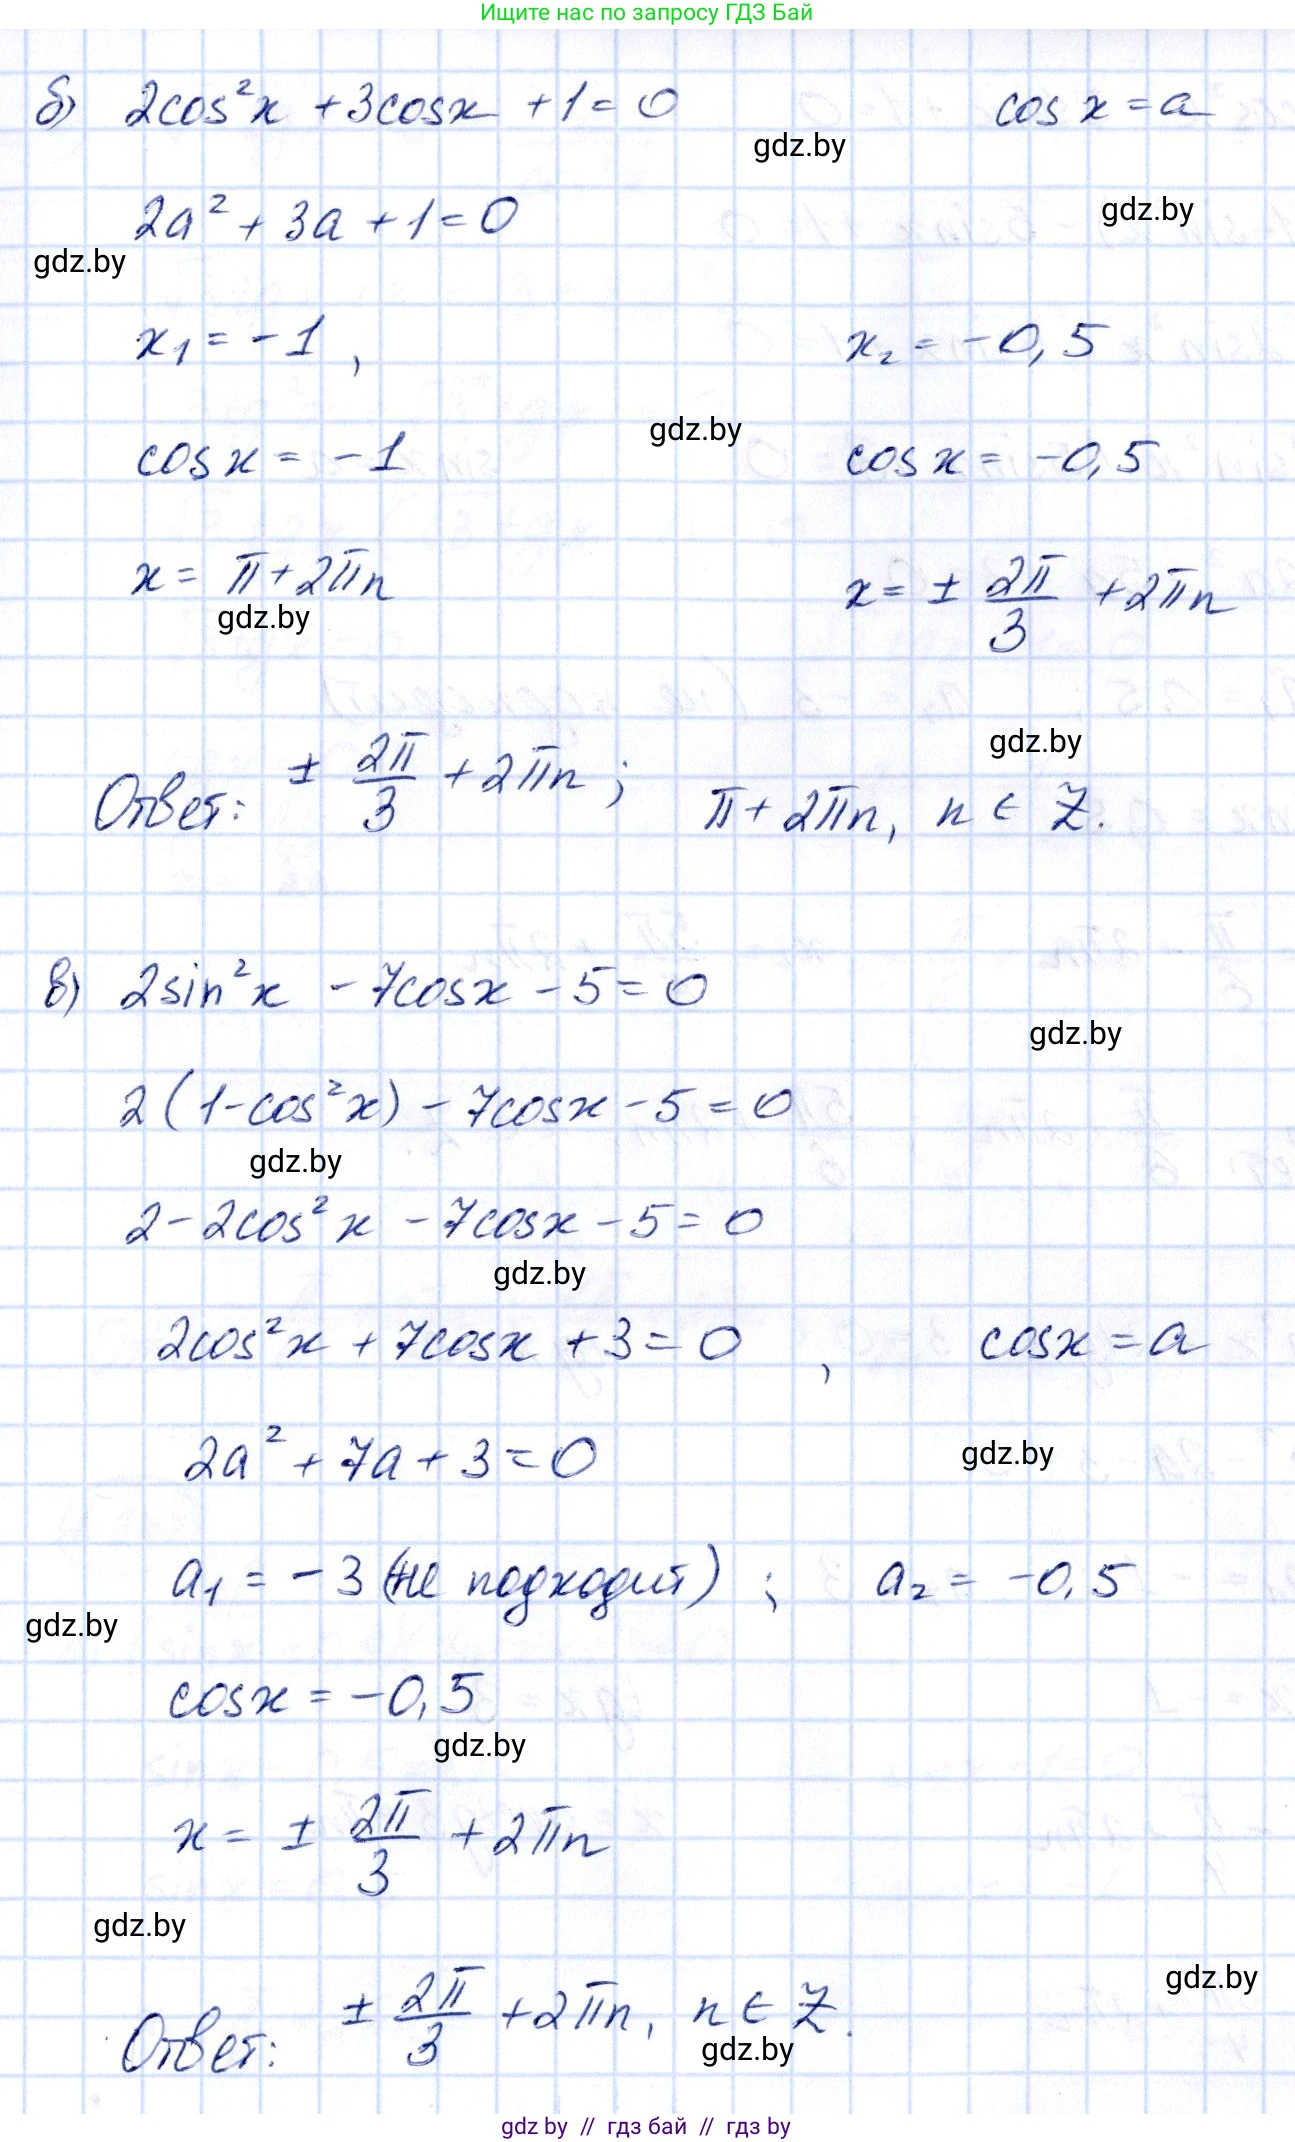 Ищите нас по запросу ГДЗ Бай
б) 2cos²x + 3cosx + 1 = 0 cos x = a
gdz.by
2a² + 3a + 1 = 0
gdz.by
gdz.by
x₁ = -1 , x₂ = -0,5
gdz.by
cos x = -1 cos x = -0,5
x = π + 2πn x = ± 2π/3 + 2πn
gdz.by
gdz.by
Ответ: ± 2π/3 + 2πn ; π + 2πn, n ∈ Z.
в) 2sin²x - 7cosx - 5 = 0
gdz.by
2(1 - cos²x) - 7cosx - 5 = 0
gdz.by
2 - 2cos²x - 7cosx - 5 = 0
gdz.by
2cos²x + 7cosx + 3 = 0 , cosx = a
2a² + 7a + 3 = 0
gdz.by
a₁ = -3 (не подходит) ; a₂ = -0,5
gdz.by
cosx = -0,5
gdz.by
x = ± 2π/3 + 2πn
gdz.by
gdz.by
Ответ: ± 2π/3 + 2πn, n ∈ Z.
gdz.by
gdz by // гдз бай // гдз by